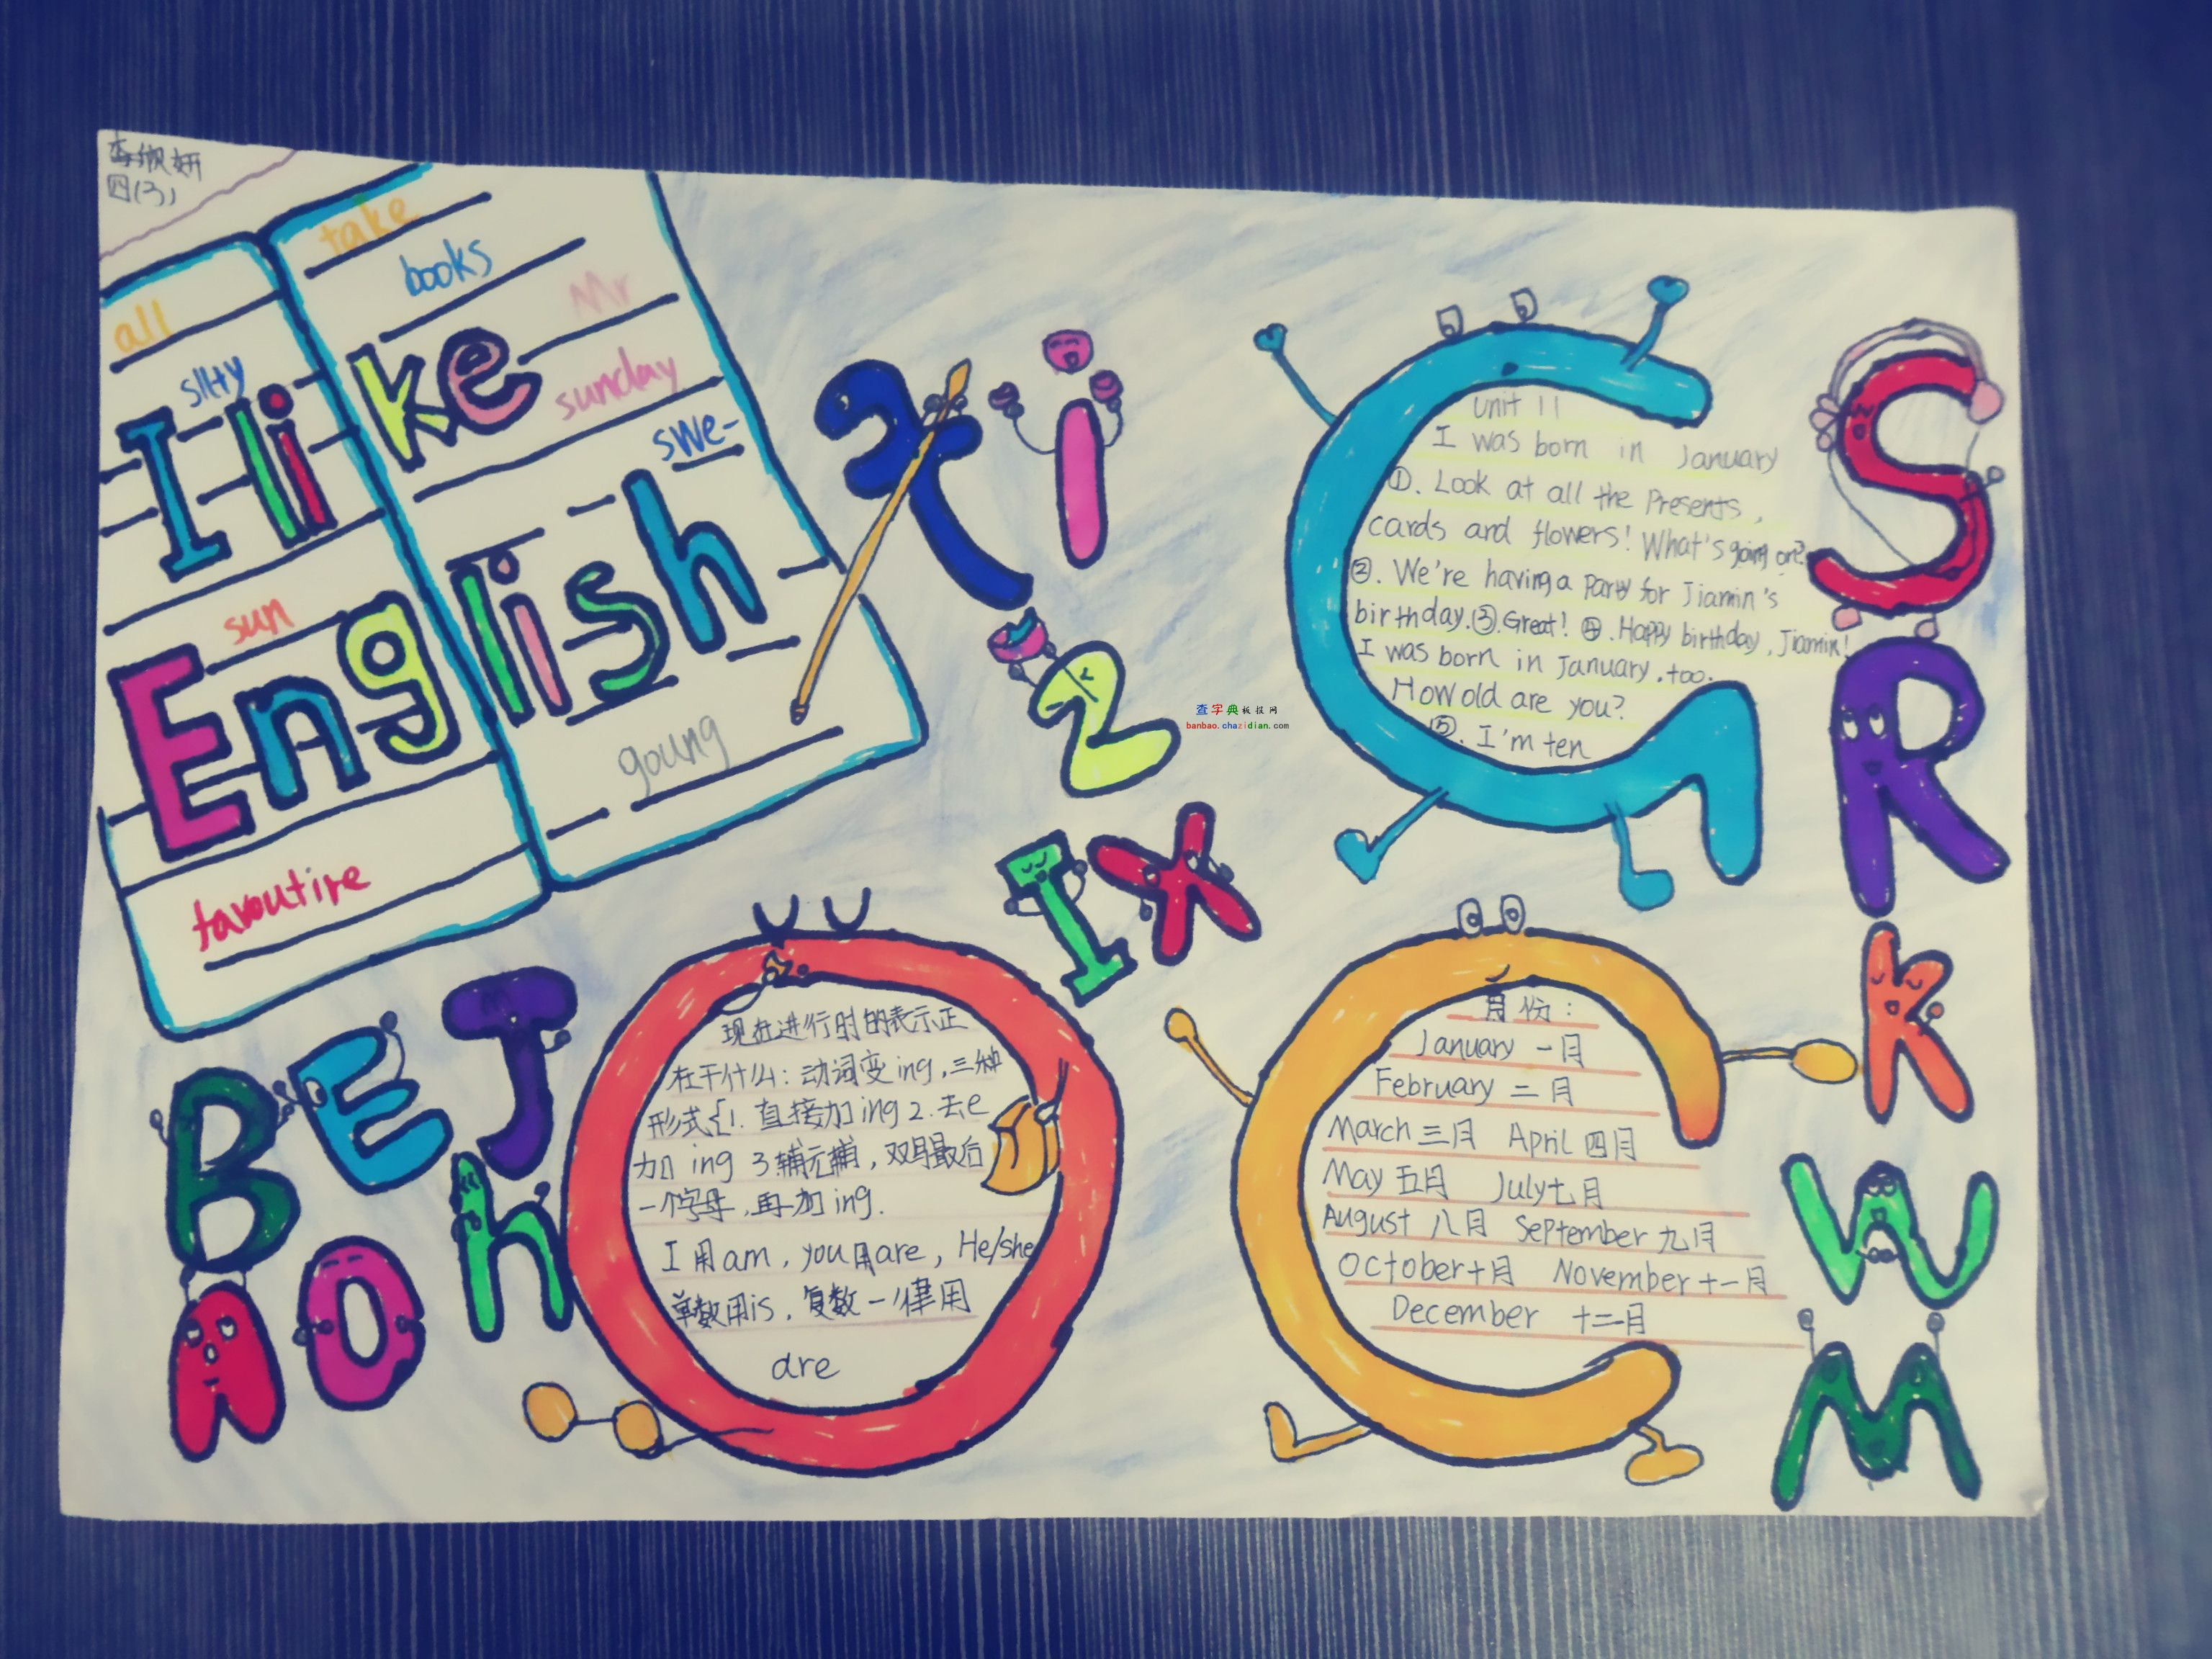 四(3)
take
books
Mr
all
silty
sunday
swe-
I like
sun
English
goung
tavoutire
x i
z
I X
unit 11
I was born in January
①. Look at all the Presents,
cards and flowers! What's going on?
②. We're having a party for Jiamin's
birthday.③.Great! ④.Happy birthday, Jiamin!
I was born in January.too.
How old are you?
⑤. I'm ten
S
R
K
W
M
查字典板报网
banbao.chazidian.com
B E J
A O h
现在进行时的表示正
在干什么：动词变ing,三种
形式{1.直接加ing 2.去e
加ing 3辅元辅,双写最后
一个字母,再加ing.
I用am, you用are, He/she
单数用is,复数一律用
are
月份：
January 一月
February 二月
March 三月 April 四月
May 五月 July七月
August 八月 September 九月
October十月 November十一月
December 十二月